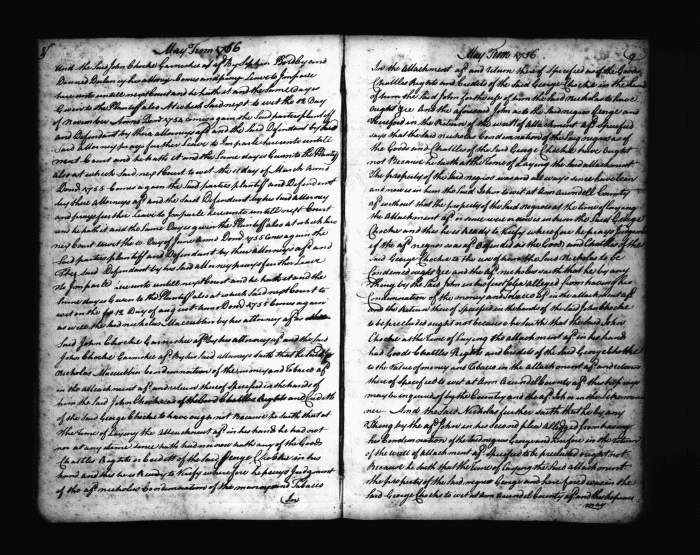 8
May Term 1756
And the Said John Chocke Garnishee afd By Stephen Bordley and
Daniel Dulany his attorneys Comes and prays Leave to Imparle
hereunto untill next Court and he hath it and the Same day is
Given to the Plantiff also At which Said next Court to wit the 12 Day
of November Anno Domd 1754 Comes again the Said parties plantiff
and Defendant by their attorneys afd and the Said Defendant by his
Said attorney prays further Leave to Imparle hereunto untill
next Court and he hath it and the Same day is Given to the Plantiff
also at which Said next Court to wit the 11 day of March Anno
Domd 1755 Comes again the Said parties plantiff and Defendant
by their attorneys afd and the Said Defendant by his Said attorney
and prays further Leave to Imparle hereunto untill next Court
and he hath it and the Same Day is given the Plantiff also at which Said
next Court to wit the Day of June Anno Domd 1755 Comes again the
Said parties plantiff and Defendant by their attorneys afd and
The Said Defendant by his Said attorney prays further Leave
to Imparle hereunto untill next Court and he hath it and the
Same day is Given to the Plantiff also at which Said next Court to
wit on the 12 Day of august anno Domd 1755 Comes again
as well the Said Nicholas Maccubbin by his attorney afd as the
Said John Chocke Garnishee afd by his attorney afd and the Said
John Chocke Garnishee afd By his Said attorney saith that the Said
Nicholas Maccubbin Condemnation of the money and Tobacco afd
in the attachment afd and return thereof Specified in the hands of
him the Said John Chocke as of the Goods Chattles Rights and Credits
of the Said George Chocke to have ought not Because he Saith that at
The Time of Laying the attachment afd in his hands he had not
nor at any time Since hath had nor now hath any of the Goods
Chattles Rights or Credits of the Said George Chocke in his
hands and this he is Ready to Verify wherefore he prays Judgment
of the afd nicholas Condemnation of the money and Tobacco
In
May Term 1756
9
In the Attachment afd and return thereof Specified as of the Goods
Chattles Rights and Credits of the Said George Chocke in the hands
of him the Said John for the use of him the Said Nicholas to have
ought &c And the aforesaid John as to the Said negroes George and
Hereford in the Return of the writ of Attachment afd Specified
says that the Said nicholas Condemnation of the Said negroes as of
the Goods and Chattles of the Said George Chocke to have ought
not Because he Saith at the Time of Laying the Said attachment
The property of the Said negroes was and all ways since have been
and now is in him the Said John to wit at Ann Arundell County
afd without that the property of the Said Negroes at the time of laying
the Attachment afd or ever since was or now is in him the Said George
Chocke and this he is Ready to Verify wherefore he prays Judgment
if the afd negroes was afd as the Goods and Chattles of the
Said George Chocke to the use of him the Said Nicholas to be
Condemned ought &c and the afd nicholas saith that he by any
Thing by the Said John in his first plea alledged from having his
Condemnation of the money and tobacco afd in the attachment afd
and the Return thereof Specified in the hands of the Said John Chocke
to be precluded ought not because he Saith that the Said John
Chocke at the Time of Laying the attachment afd in his hands
had Goods Chattles Rights and Credits of the Said George Chocke
to the Value of money and Tobacco in the attachment afd and return
thereof Specified to wit at Ann Arundell County afd this he prays
may be inquired of by the Country and the afd John in like man
ner And the Said Nicholas further saith that he by any
Thing by the afd John in his Second plea alledged from having
his Condemnation of the Said negroes George and Hereford in the return
of the writ of attachment afd Specified to be precluded ought not
Because he Saith that the Time of Laying the Said attachment
the property of the Said negroes George and Hereford was in the
Said George Chocke to wit at Ann Arundel County afd and this he prays
may